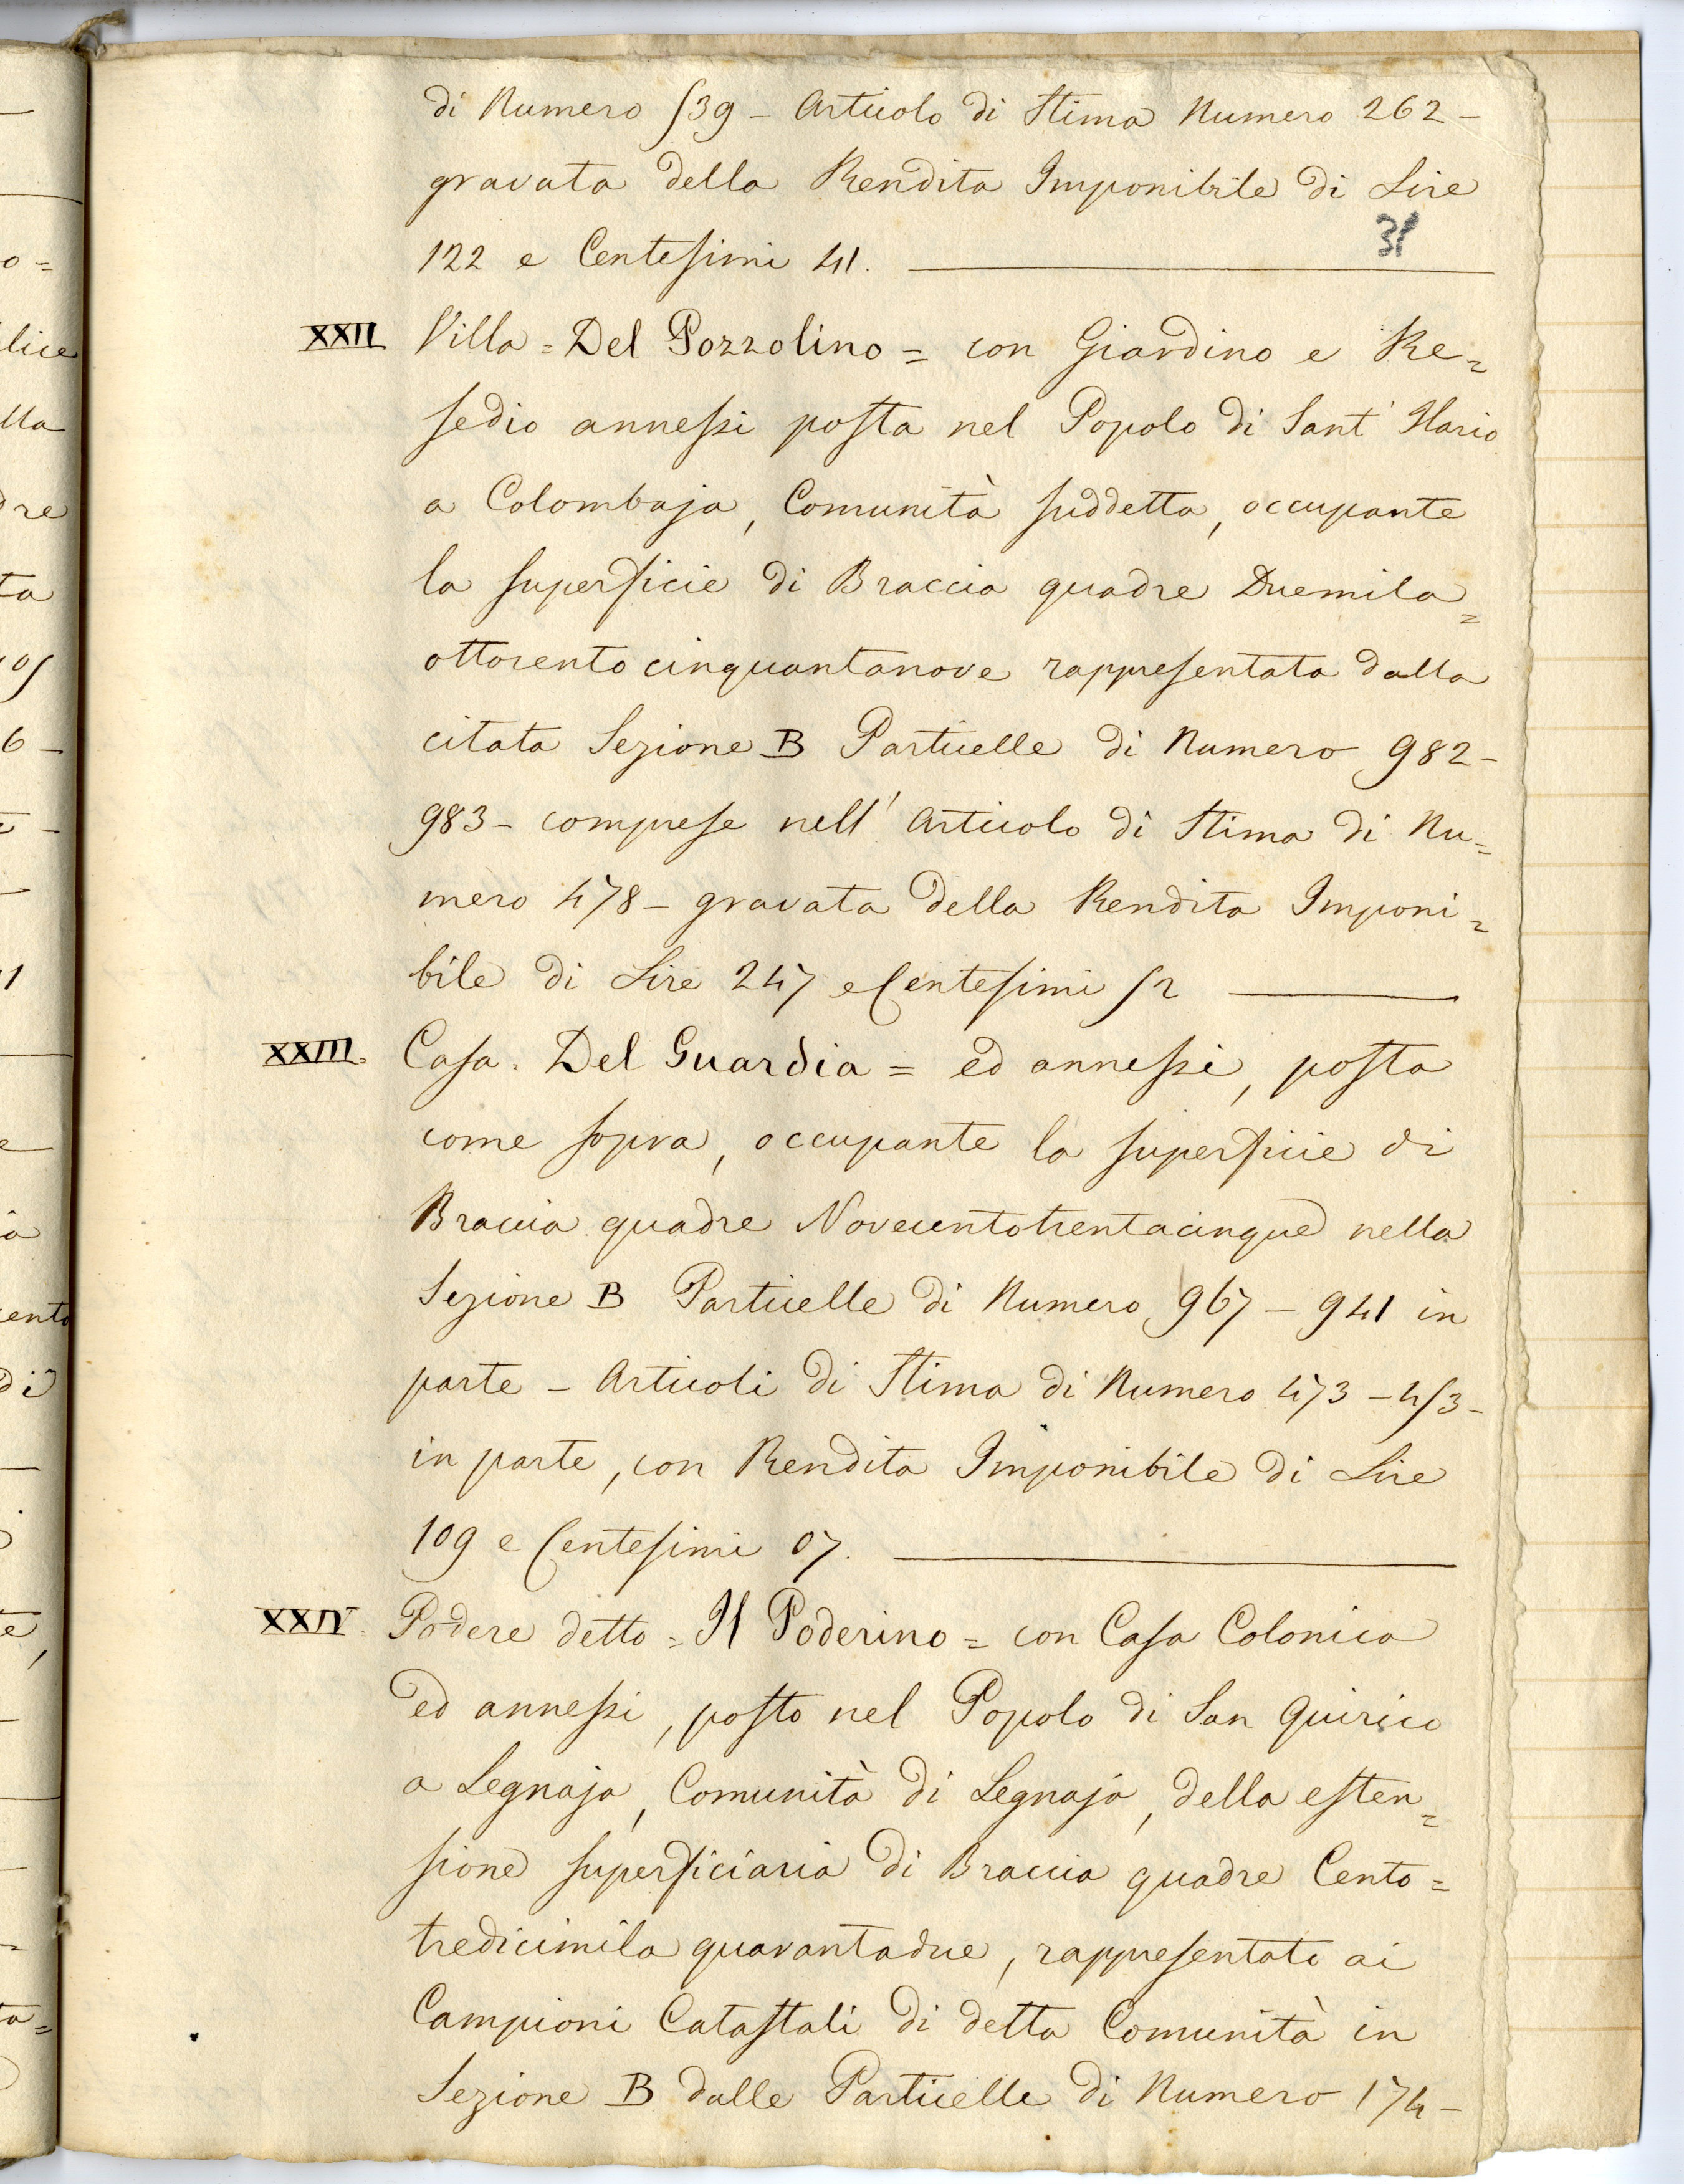 di Numero 539 - Articolo di Stima Numero 262 -
gravata della Rendita Imponibile di Lire
31
122 e Centesimi 41.
XXII Villa = Del Pozzolino = con Giardino e Re=
sedio annessi posta nel Popolo di Sant' Ilario
a Colombaja, Comunità suddetta, occupante
la superficie di Braccia quadre Duemila=
ottocentocinquantanove rappresentata dalla
citata Sezione B Particelle di Numero 982-
983- comprese nell' Articolo di Stima di Nu=
mero 478- gravata della Rendita Imponi=
bile di Lire 247 e Centesimi 52
XXIII. Casa = Del Guardia = ed annessi, posta
come sopra, occupante la superficie di
Braccia quadre Novecentotrentacinque nella
Sezione B Particelle di Numero 967 - 941 in
parte - Articoli di Stima di Numero 473 - 453-
in parte, con Rendita Imponibile di Lire
109 e Centesimi 07.
XXIV. Podere detto = Il Poderino = con Casa Colonica
ed annessi, posto nel Popolo di San Quirico
a Legnaja, Comunità di Legnaja, della esten=
sione superficiaria di Braccia quadre Cento=
tredicimila quarantadue, rappresentato ai
Campioni Catastali di detta Comunità in
Sezione B dalle Particelle di Numero 174-